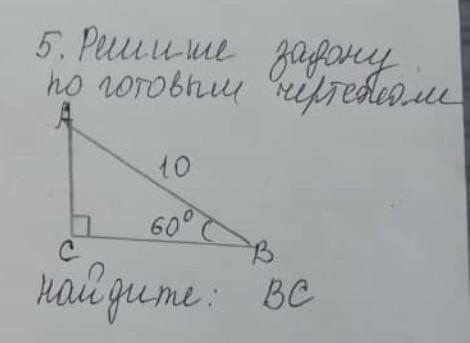 5. Решите задачу
по готовым чертежам
A
10
60°
C
B
найдите: BC